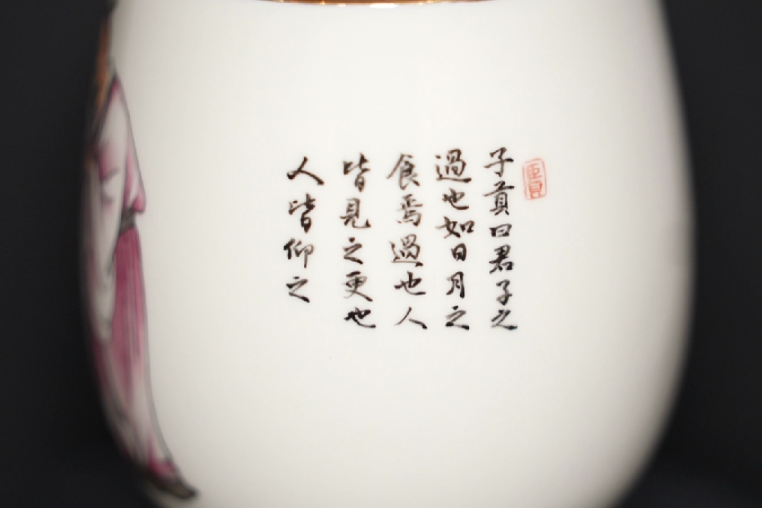 子貢曰君子之
過也如日月之
食焉過也人
皆見之更也
人皆仰之